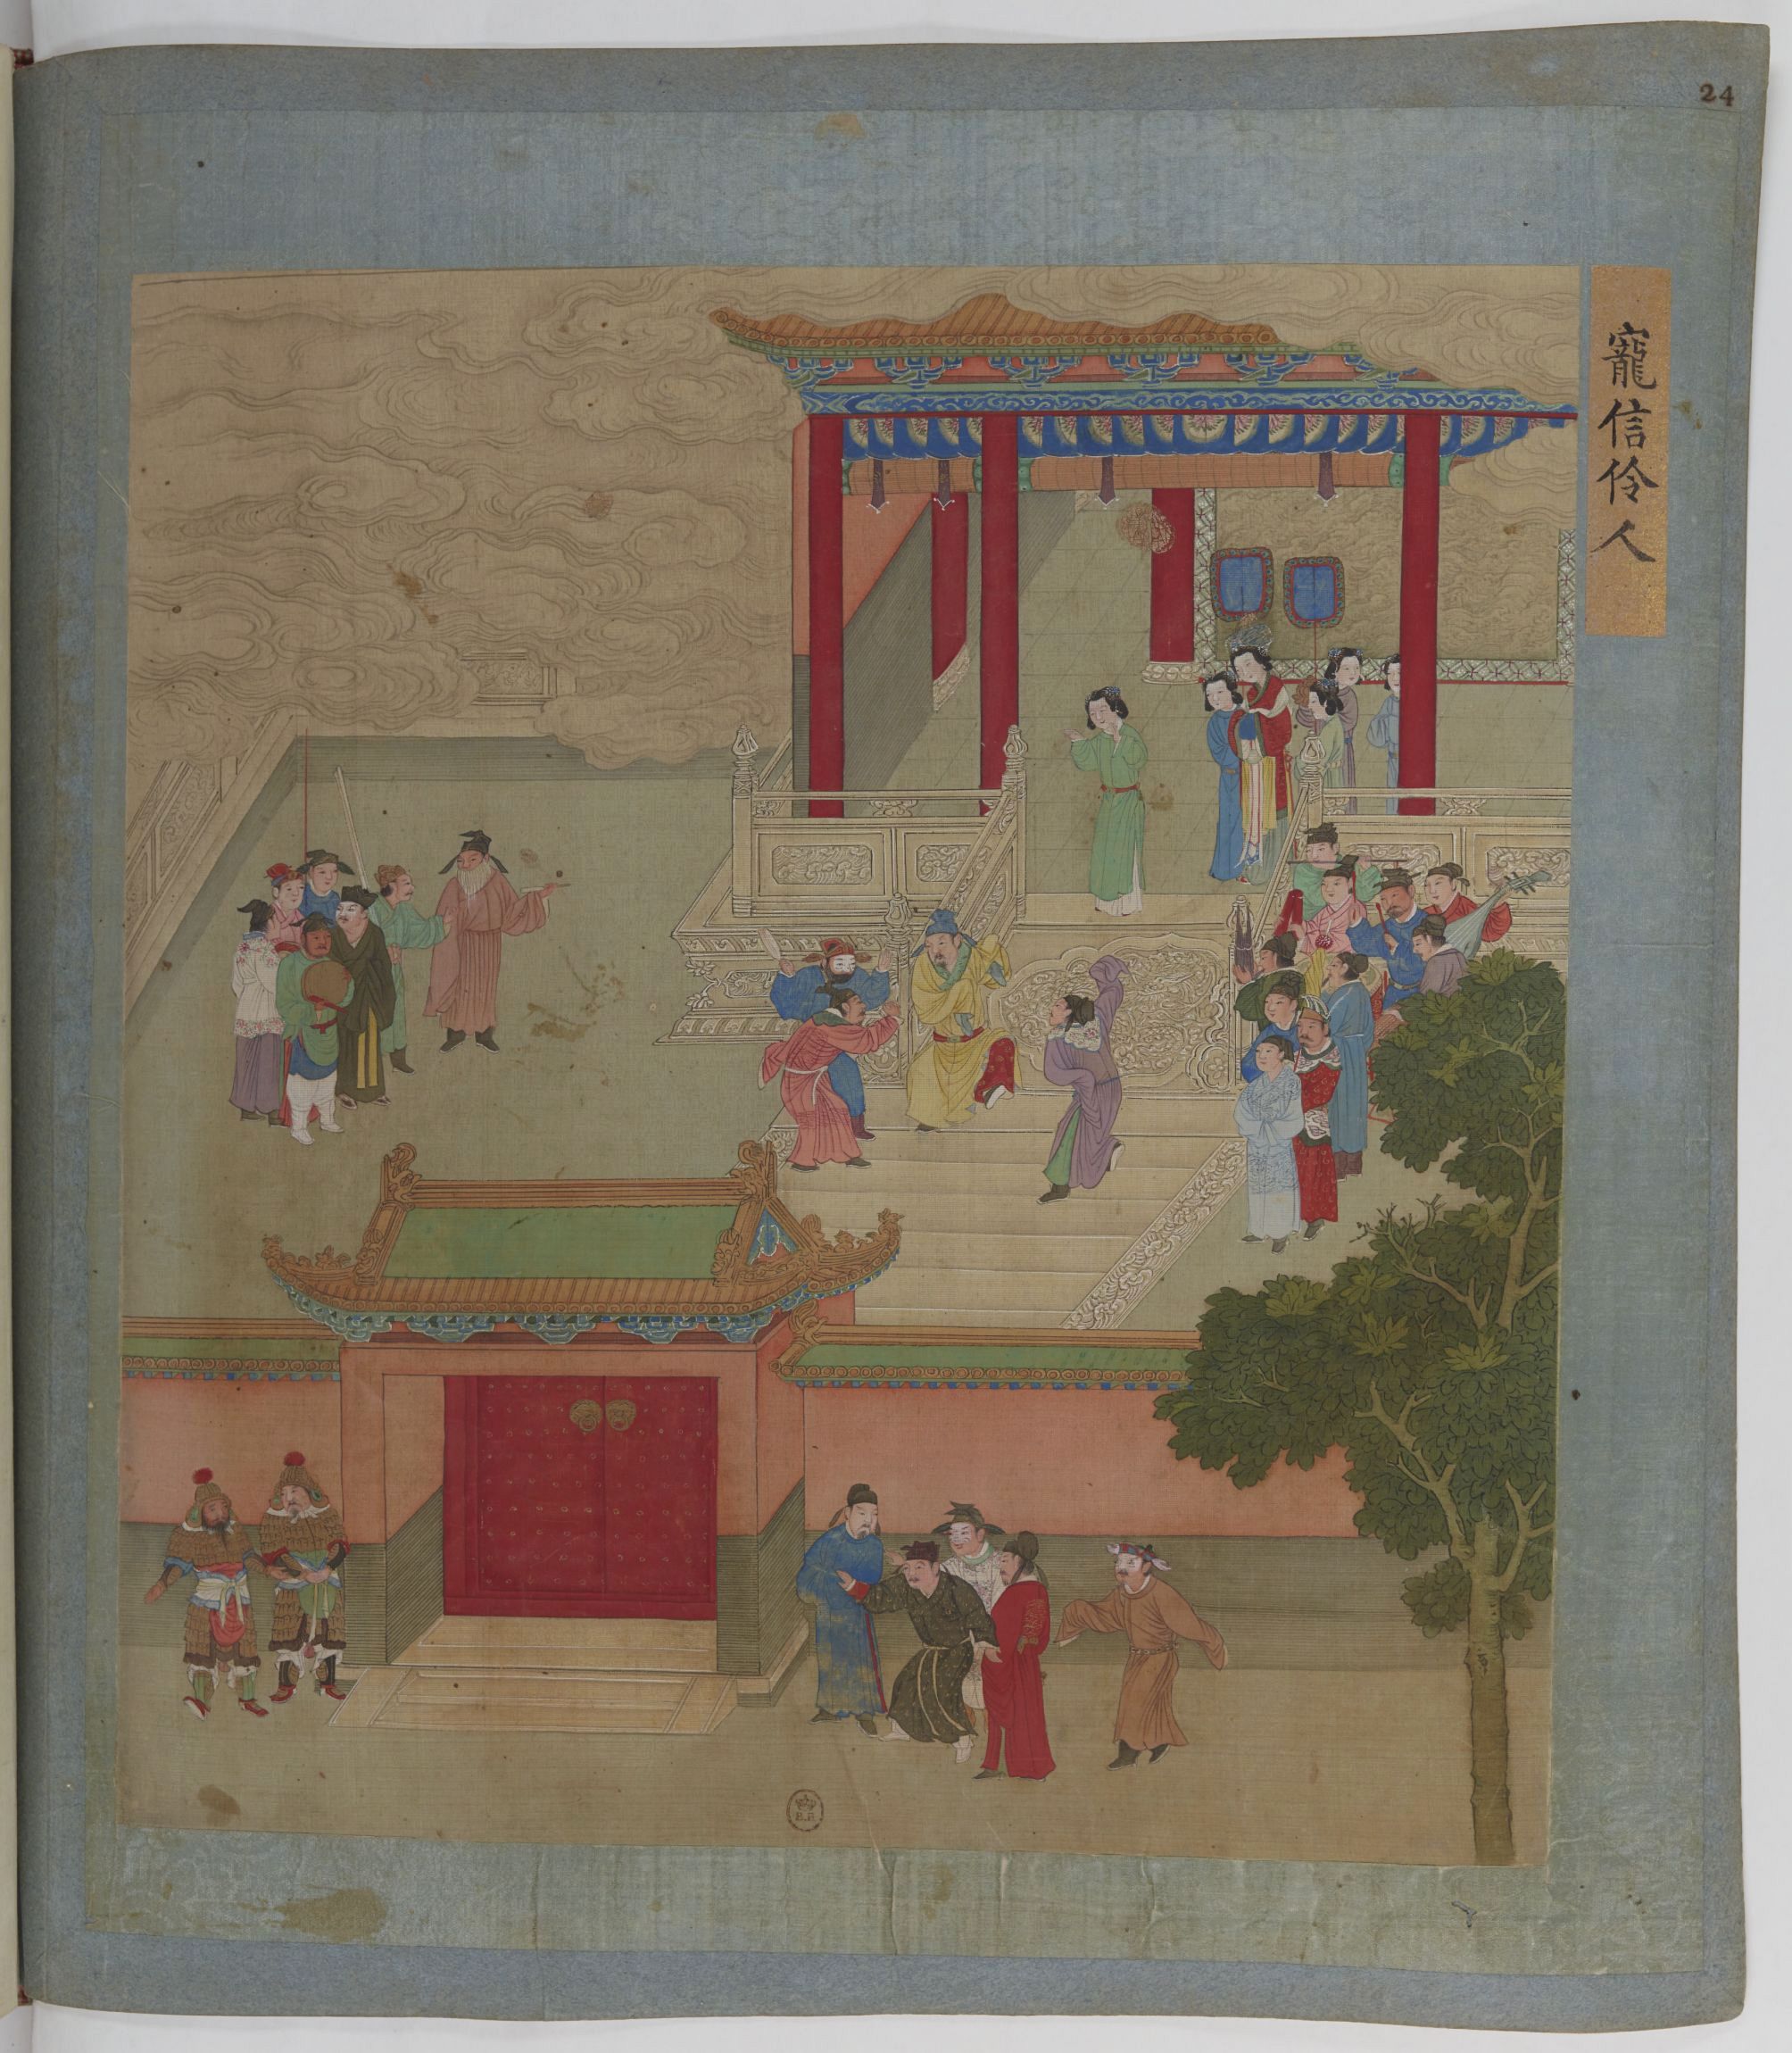 24
寵信伶人
B.R.